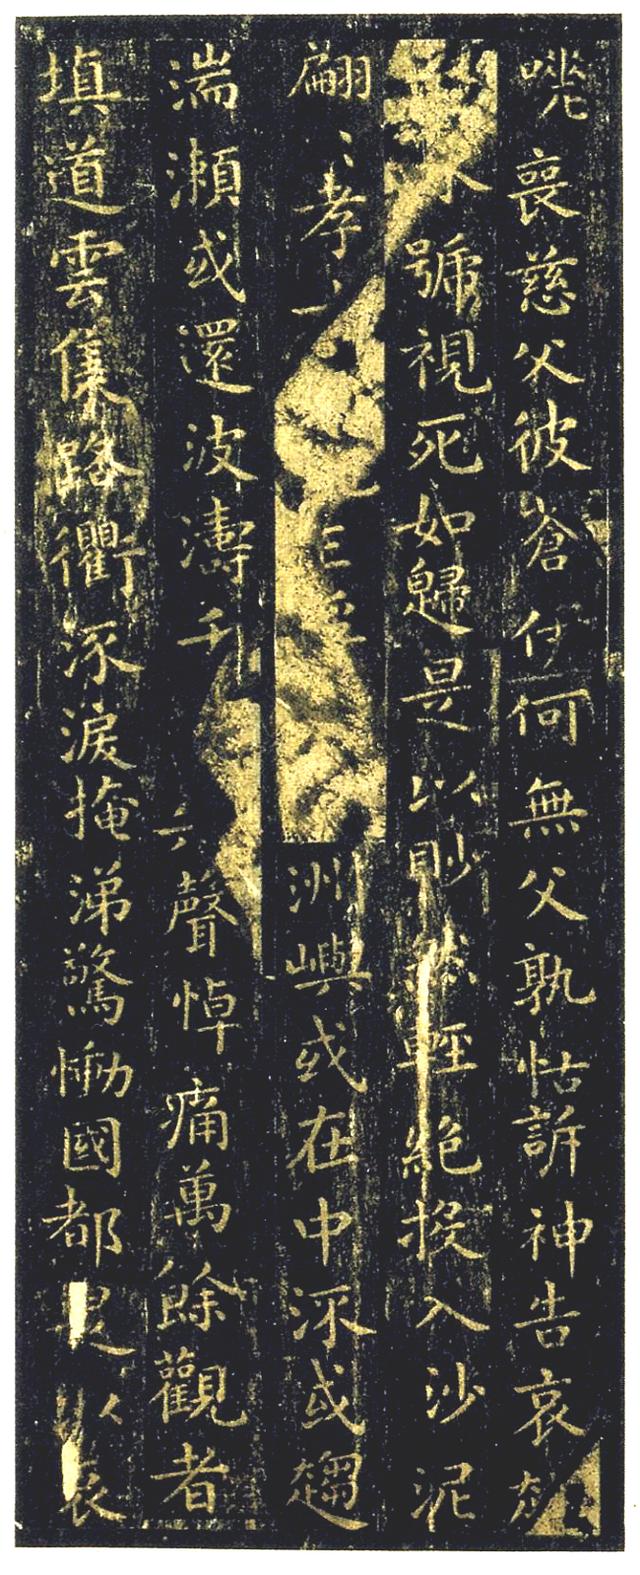 咷喪慈父彼蒼伊何無父孰怙訴神告哀
號視死如歸是以眇然輕絕投入沙泥
翩〻孝女洲嶼或在中流或趨
湍瀨或還波濤千聲悼痛萬餘觀者
填道雲集路衢流淚掩涕驚慟國都是以哀